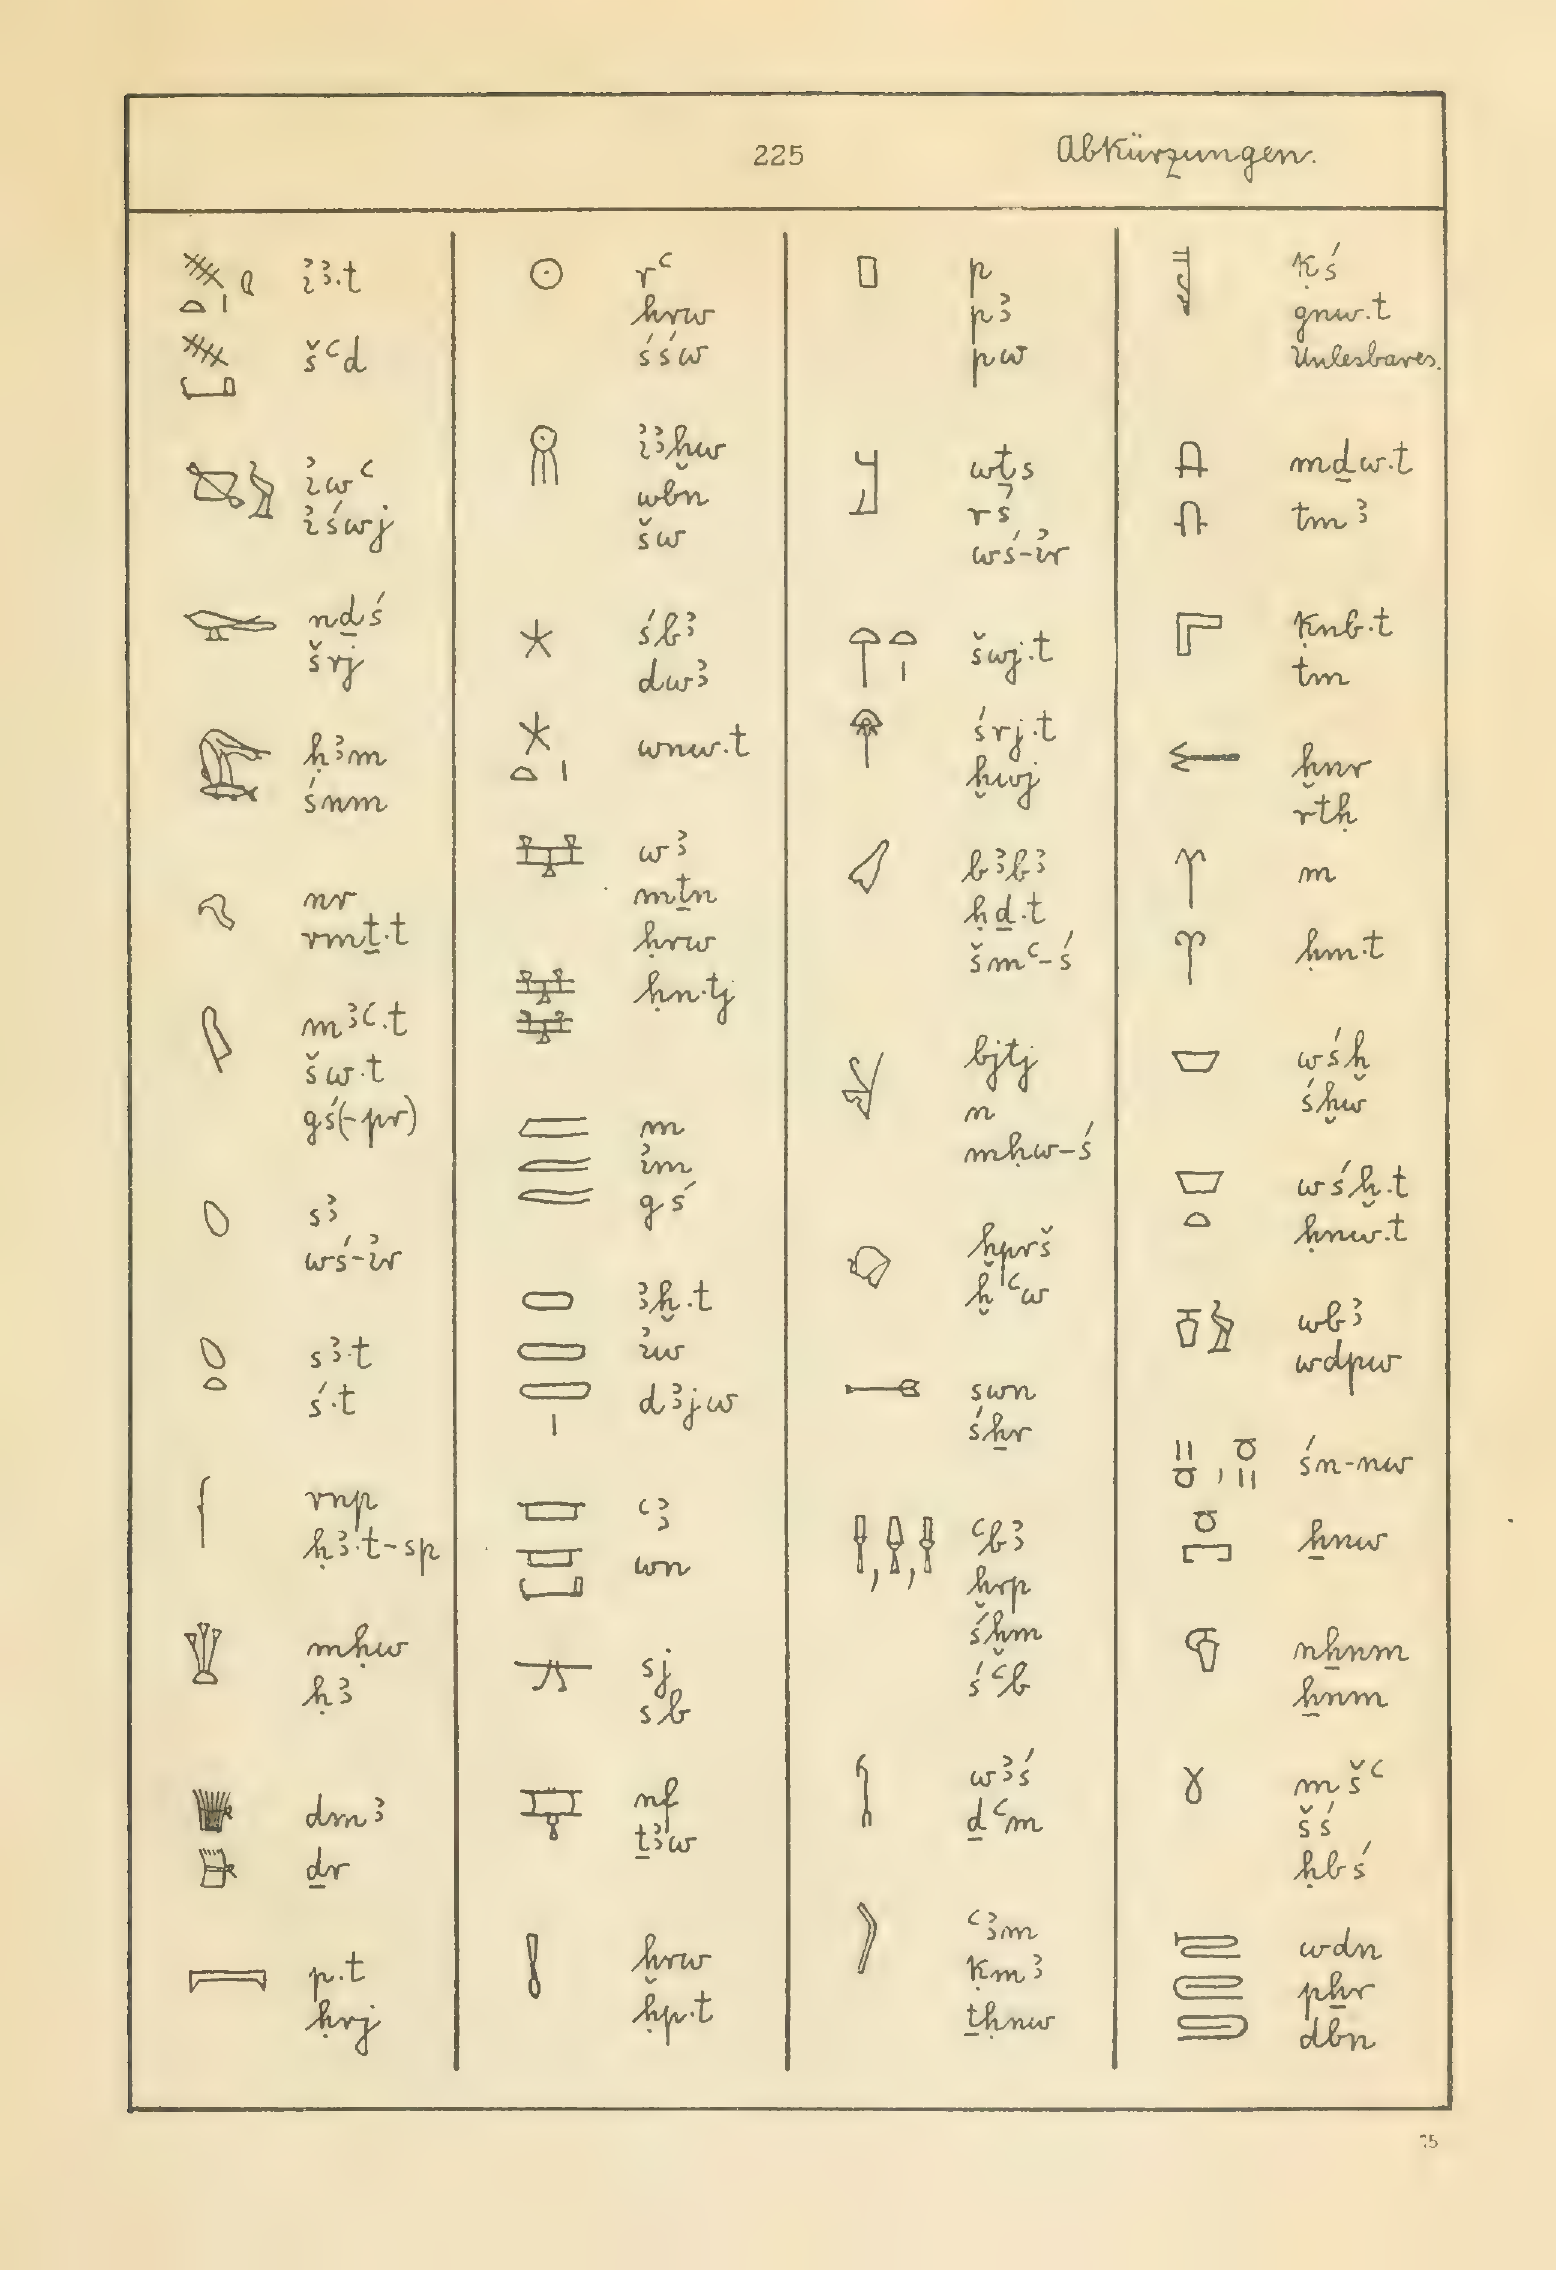 225
Abkürzungen.
ỉꜣ.t
šꜥd
ỉwꜥ
ỉśwj
nḏś
šrj
ḥꜣm
śnm
nr
rmṯ.t
mꜣꜥ.t
šw.t
gś(-pr)
sꜣ
wś-ỉr
sꜣ.t
ś.t
rnp
ḥꜣ.t-sp
mḥw
ḥꜣ
dmꜣ
ḏr
p.t
ḥrj
rꜥ
hrw
śśw
ỉꜣḫw
wbn
šw
śbꜣ
dwꜣ
wnw.t
wꜣ
mṯn
ḥrw
ḥn.tj
m
ỉm
gś
ꜣḫ.t
ỉw
dꜣjw
ꜥꜣ
wn
sj
sb
nf
ṯꜣw
ḫrw
ḥp.t
p
pꜣ
pw
wṯs
rś
wś-ỉr
šwj.t
śrj.t
ḫwj
bꜣbꜣ
ḥḏ.t
šmꜥ-ś
bjtj
n
mḥw-ś
ḫprš
ḫꜥw
swn
śẖr
ꜥbꜣ
ḫrp
śḫm
śꜥb
wꜣś
ḏꜥm
ꜥꜣm
ḳmꜣ
ṯḥnw
ḳś
gnw.t
Unlesbares.
mḏw.t
tmꜣ
ḳnb.t
tm
ḫnr
rtḥ
m
ḥm.t
wśḫ
śḫw
wśḫ.t
ḥnw.t
wbꜣ
wdpw
śn-nw
ẖnw
nẖnm
ẖnm
mšꜥ
šś
ḥbś
wdn
pẖr
dbn